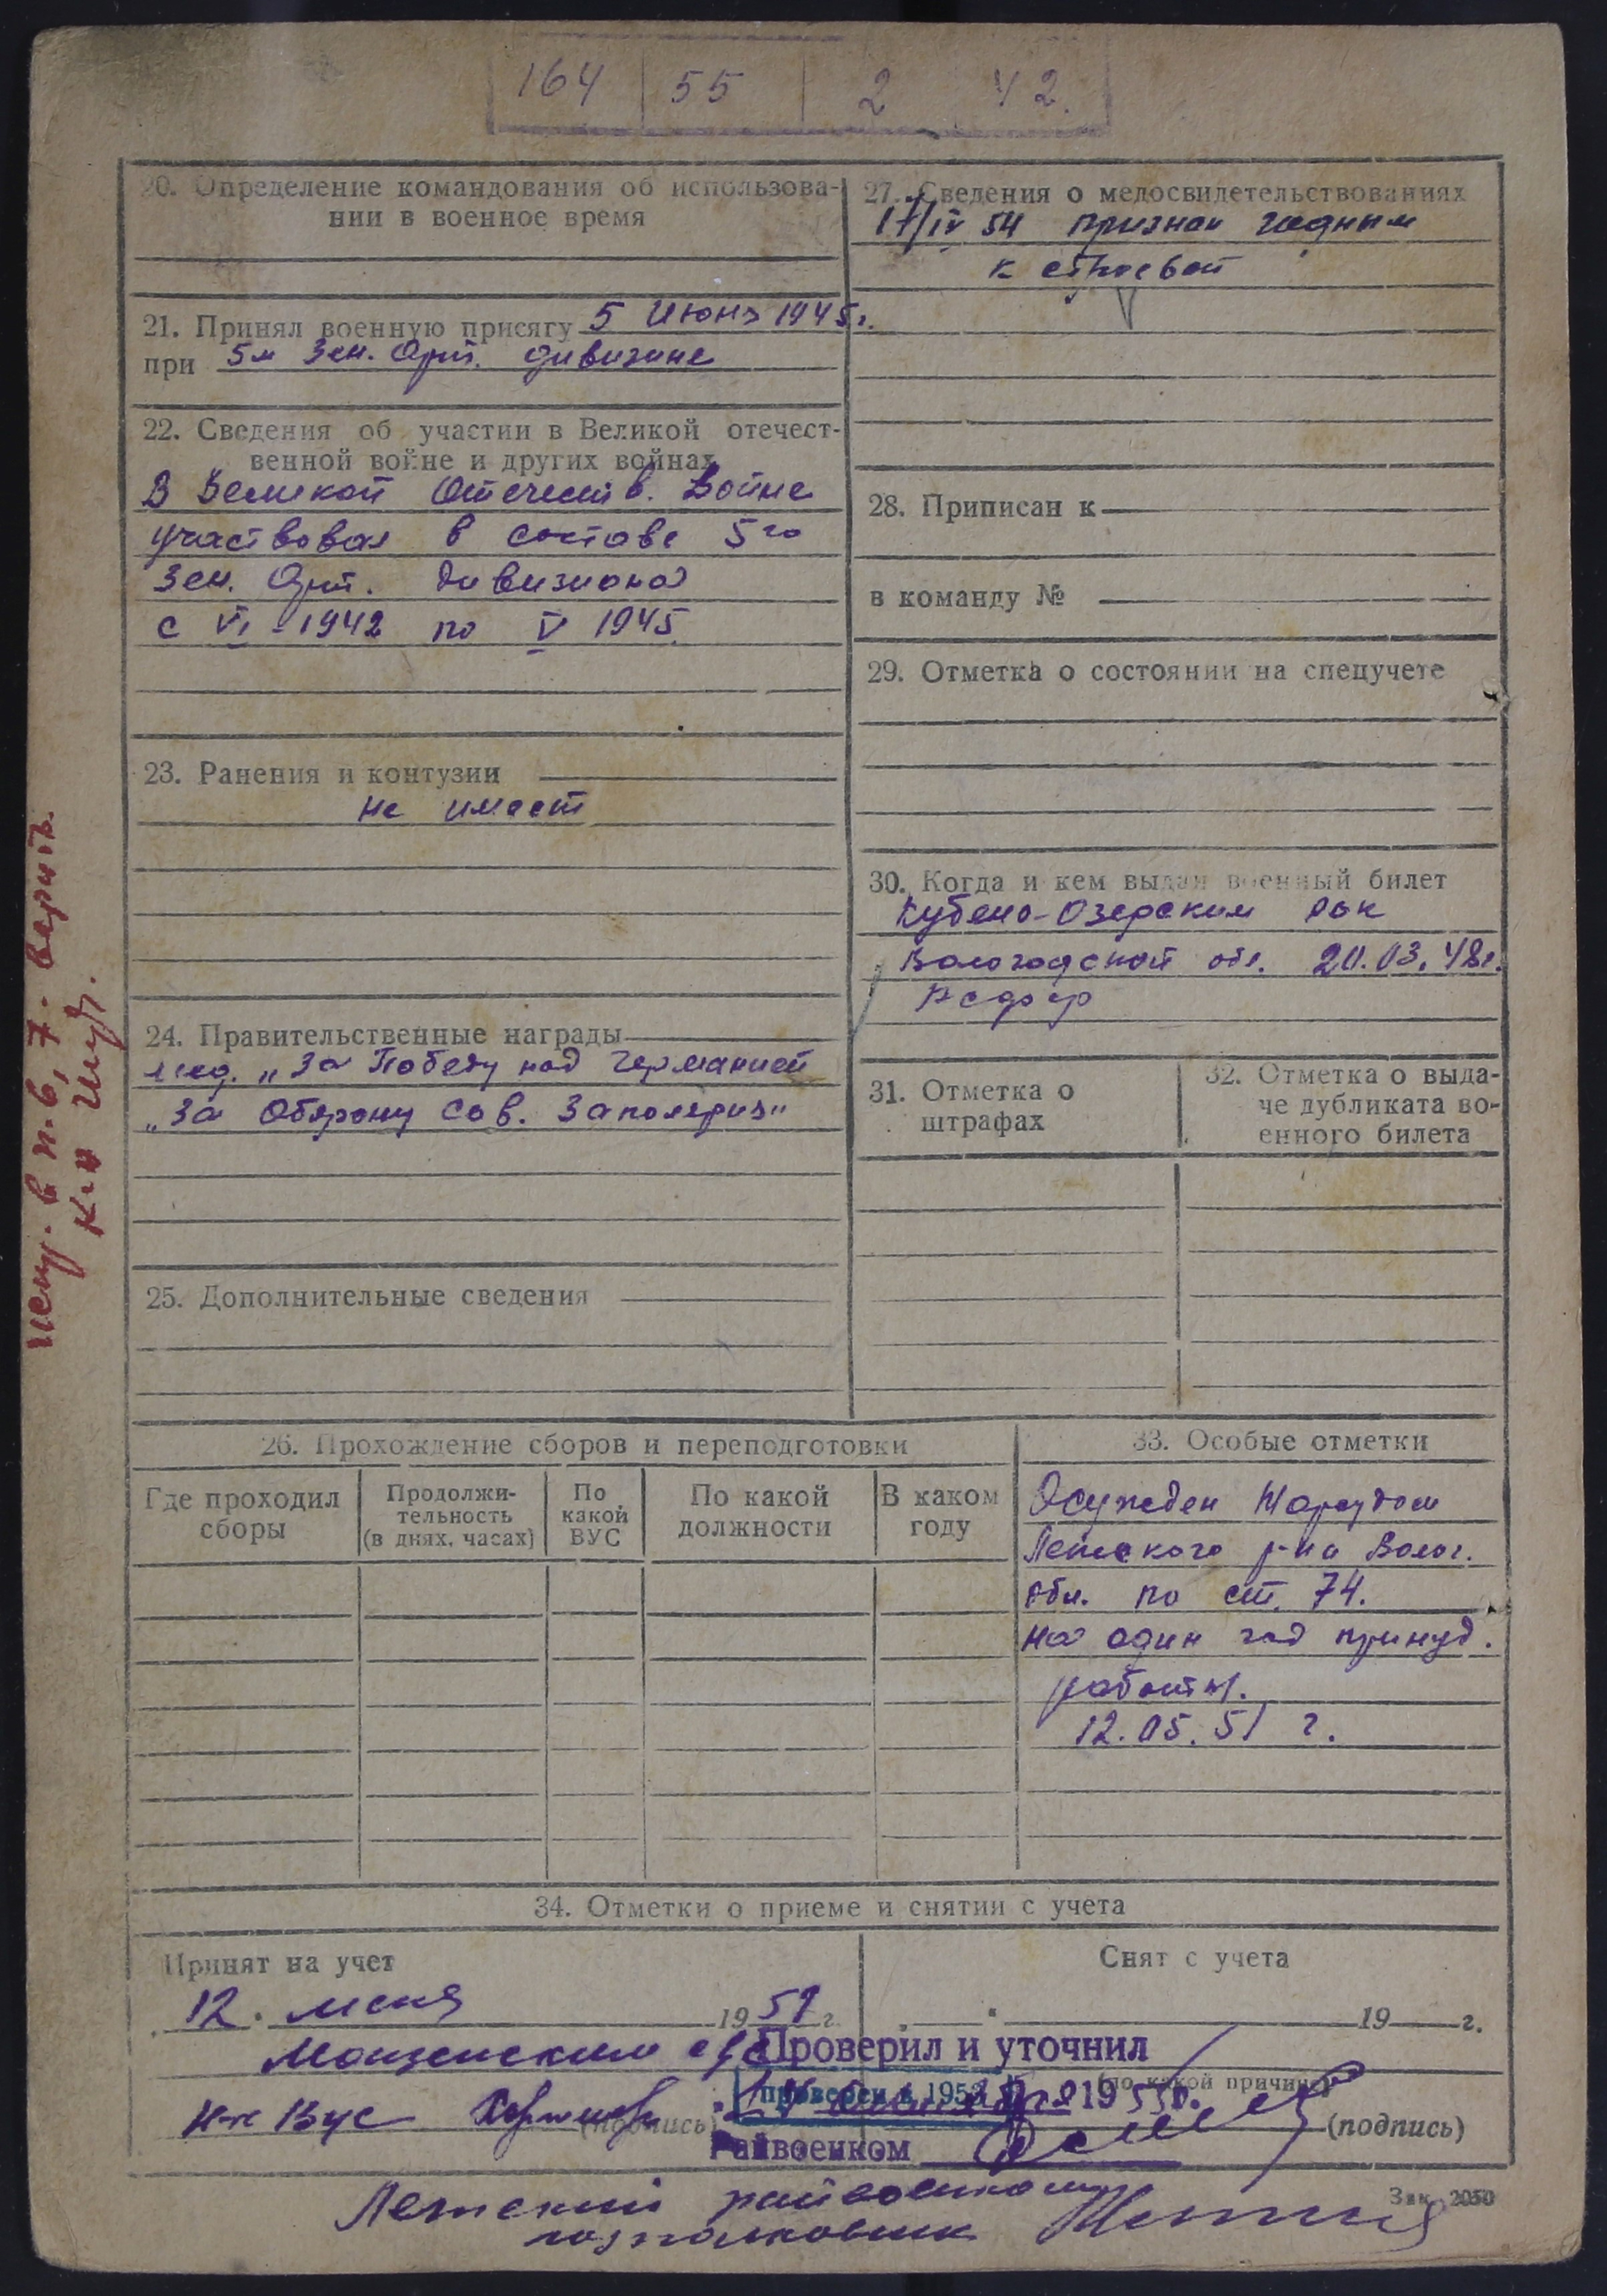 164 55 2 42.
20. Определение командования об использова-
нии в военное время
21. Принял военную присягу 5 Июня 1945г.
при 5м Зен. Арт. дивизионе
22. Сведения об участии в Великой отечест-
венной войне и других войнах
В Великой Отечеств. Войне
участвовал в составе 5го
Зен. Арт. дивизиона
с VI-1942 по V 1945.
23. Ранения и контузии
Не имеет
24. Правительственные награды
мед. „За Победу над Германией
„За Оборону Сов. Заполярия"
25. Дополнительные сведения
27. Сведения о медосвидетельствованиях
17/IV 54 признан годным
к строевой
28. Приписан к
в команду №
29. Отметка о состоянии на спецучете
30. Когда и кем выдан военный билет
Кубено-Озерским РВК
Вологодской обл. 20.03.48г.
РСФСР
31. Отметка о
штрафах
32. Отметка о выда-
че дубликата во-
енного билета
26. Прохождение сборов и переподготовки
Где проходил
сборы
Продолжи-
тельность
(в днях, часах)
По
какой
ВУС
По какой
должности
В каком
году
33. Особые отметки
Осужден Нарсудом
Лежского р-на Волог.
обл. по ст. 74.
на один год принуд.
работы.
12.05.51 г.
34. Отметки о приеме и снятии с учета
Принят на учет
12. мая 1951 г.
(подпись)
Снят с учета
19 г.
(по какой причине)
(подпись)
Проверил и уточнил
проверен в 1952
195 г.
Райвоенком
Лежский райвоенком
подполковник
Зак. 2050
испр. в п. 6, 7. верить.